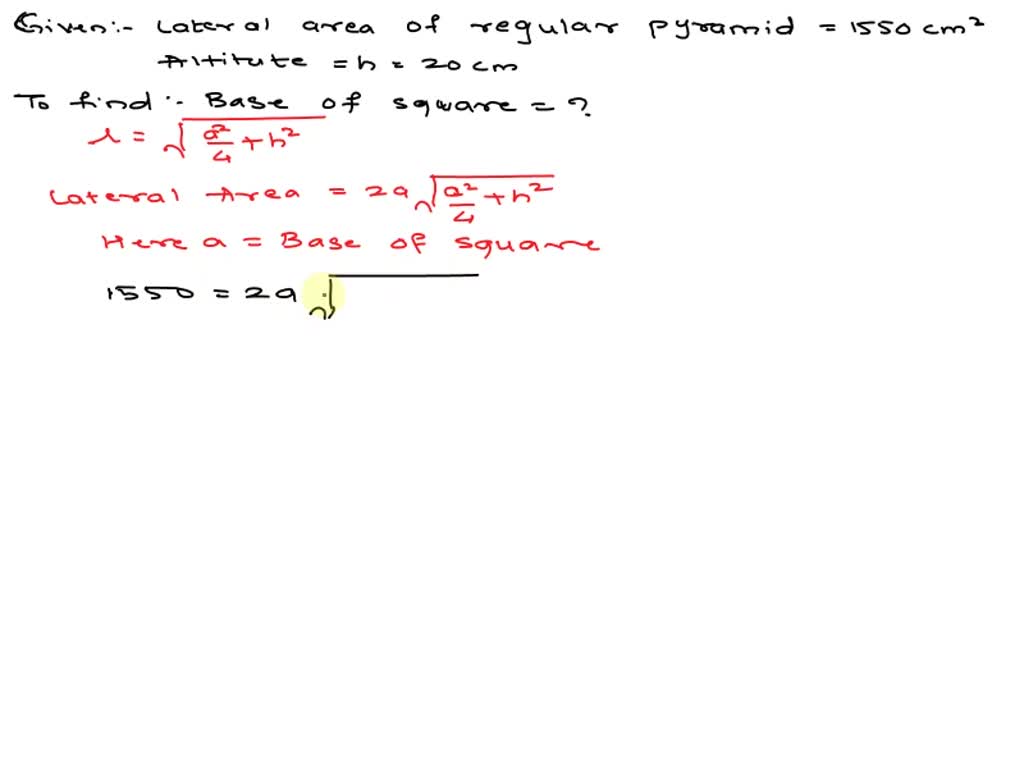 Given:- Lateral area of regular pyramid = 1550 cm²
Altitute = h = 20 cm
To find :- Base of square = ?
l = √(a²/4 + h²)
Lateral Area = 2a √(a²/4 + h²)
Here a = Base of square
1550 = 2a √